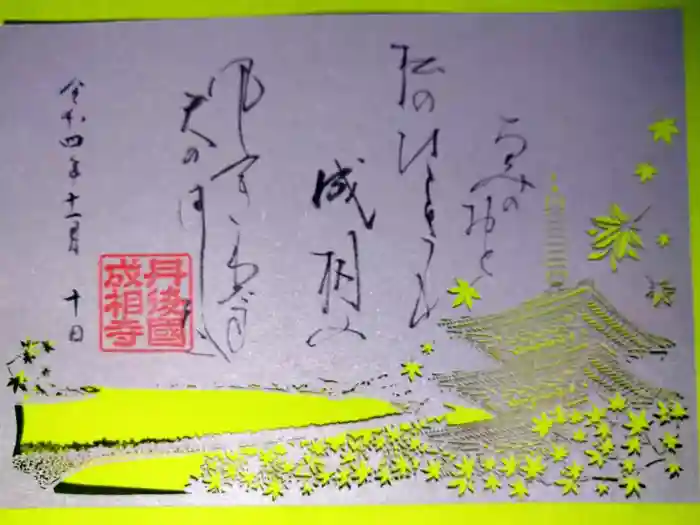 なみの
おと
松のひびきも
成相の
風ふきわたす
天の
令和四年十一月十日
丹後國
成相寺